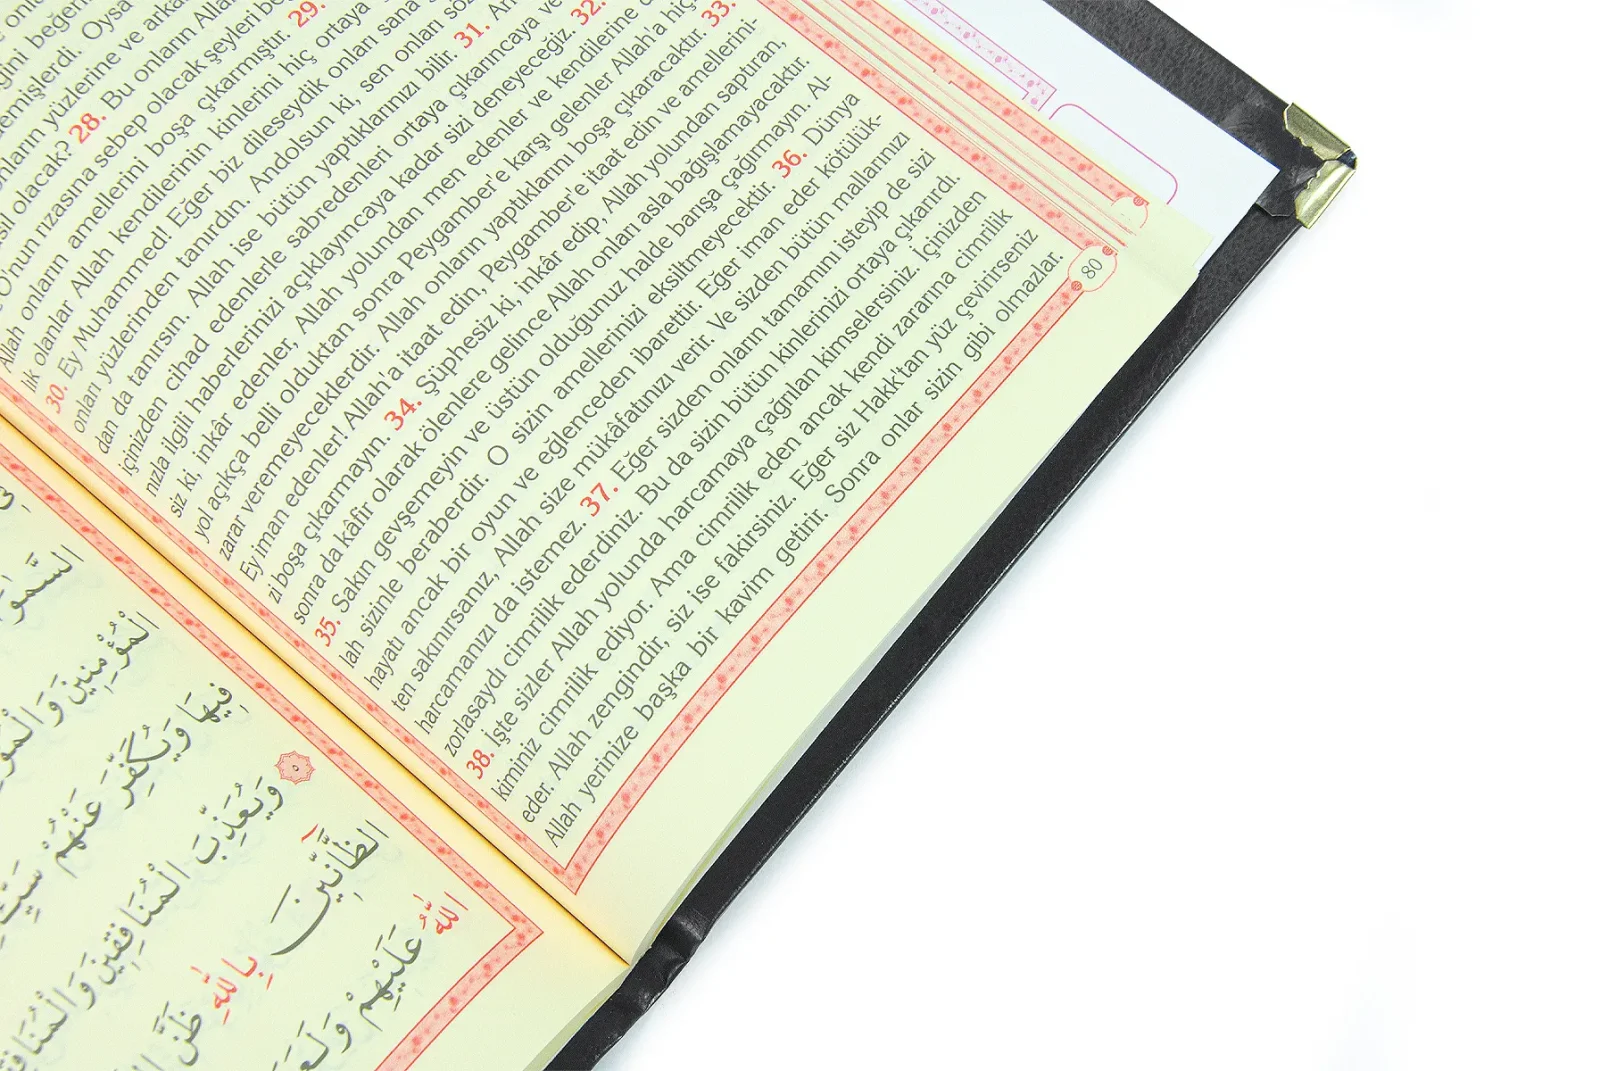 ğini beğenm
emişlerdi. Oysa
onların yüzlerine ve arka
asıl olacak? 28. Bu onların Allah
O'nun rızasına sebep olacak şeyleri be
Allah onların amellerini boşa çıkarmıştır. 29.
lık olanlar Allah kendilerinin kinlerini hiç ortaya
30. Ey Muhammed! Eğer biz dileseydik onları sana
onları yüzlerinden tanırdın. Andolsun ki, sen onları söz
dan da tanırsın. Allah ise bütün yaptıklarınızı bilir. 31. An
içinizden cihad edenlerle sabredenleri ortaya çıkarıncaya ve
nızla ilgili haberlerinizi açıklayıncaya kadar sizi deneyeceğiz. 32.
siz ki, inkâr edenler, Allah yolundan men edenler ve kendilerine d
yol açıkça belli olduktan sonra Peygamber'e karşı gelenler Allah'a hiç
zarar veremeyeceklerdir. Allah onların yaptıklarını boşa çıkaracaktır. 33.
Ey iman edenler! Allah'a itaat edin, Peygamber'e itaat edin ve amellerini-
zi boşa çıkarmayın. 34. Şüphesiz ki, inkâr edip, Allah yolundan saptıran,
sonra da kâfir olarak ölenlere gelince Allah onları asla bağışlamayacaktır.
35. Sakın gevşemeyin ve üstün olduğunuz halde barışa çağırmayın. Al-
lah sizinle beraberdir. O sizin amellerinizi eksiltmeyecektir. 36. Dünya
hayatı ancak bir oyun ve eğlenceden ibarettir. Eğer iman eder kötülük-
ten sakınırsanız, Allah size mükâfatınızı verir. Ve sizden bütün mallarınızı
harcamanızı da istemez. 37. Eğer sizden onların tamamını isteyip de sizi
zorlasaydı cimrilik ederdiniz. Bu da sizin bütün kinlerinizi ortaya çıkarırdı.
38. İşte sizler Allah yolunda harcamaya çağrılan kimselersiniz. İçinizden
kiminiz cimrilik ediyor. Ama cimrilik eden ancak kendi zararına cimrilik
eder. Allah zengindir, siz ise fakirsiniz. Eğer siz Hakk'tan yüz çevirirseniz
Allah yerinize başka bir kavim getirir. Sonra onlar sizin gibi olmazlar.
80
الْمُؤْمِنِينَ وَالْمُؤ
فِيهَا وَيُكَفِّرَ عَنْهُمْ
٥ وَيُعَذِّبَ الْمُنَافِقِينَ وَالْمُنَافِقَ
الظَّٓانِّينَ بِاللّٰهِ ظَنَّ
اللّٰهُ عَلَيْهِمْ وَلَعَ